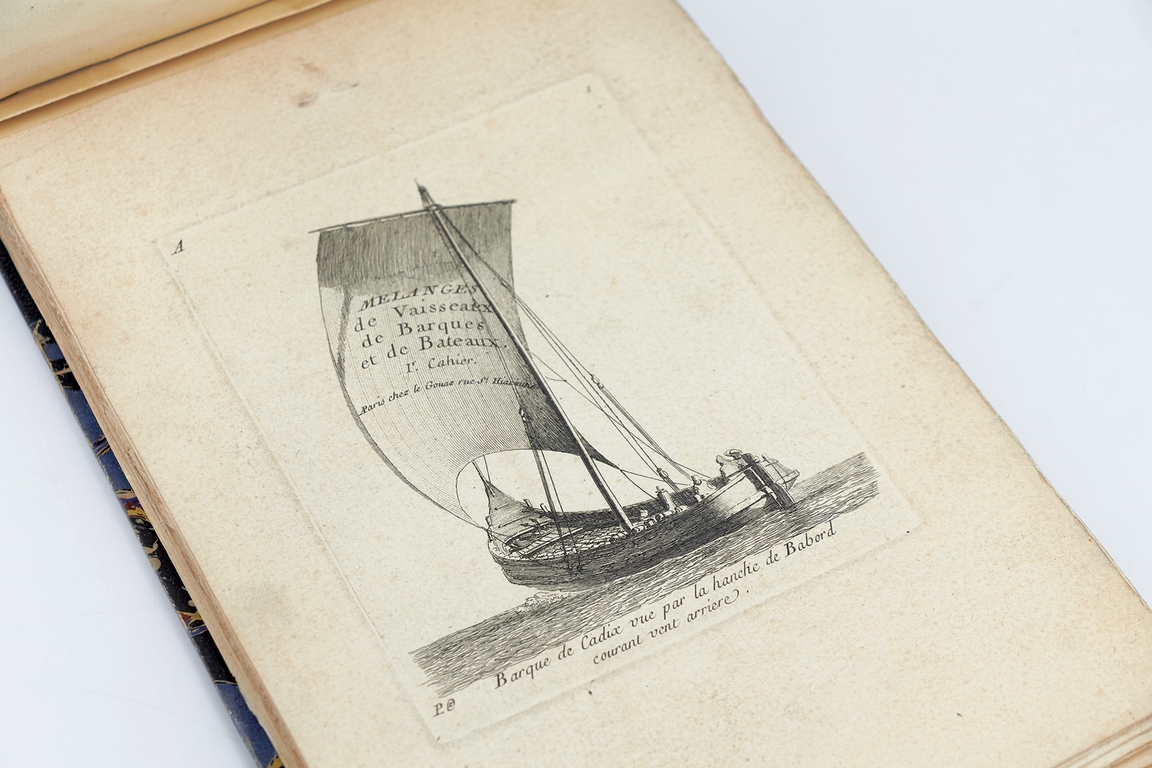 1
A
MELANGES
de Vaisseaux
de Barques
et de Bateaux.
Ir. Cahier.
AParis chez le Gouaz rue St. Hiacinthe
Barque de Cadix vue par la hanche de Babord
courant vent arriere.
P.